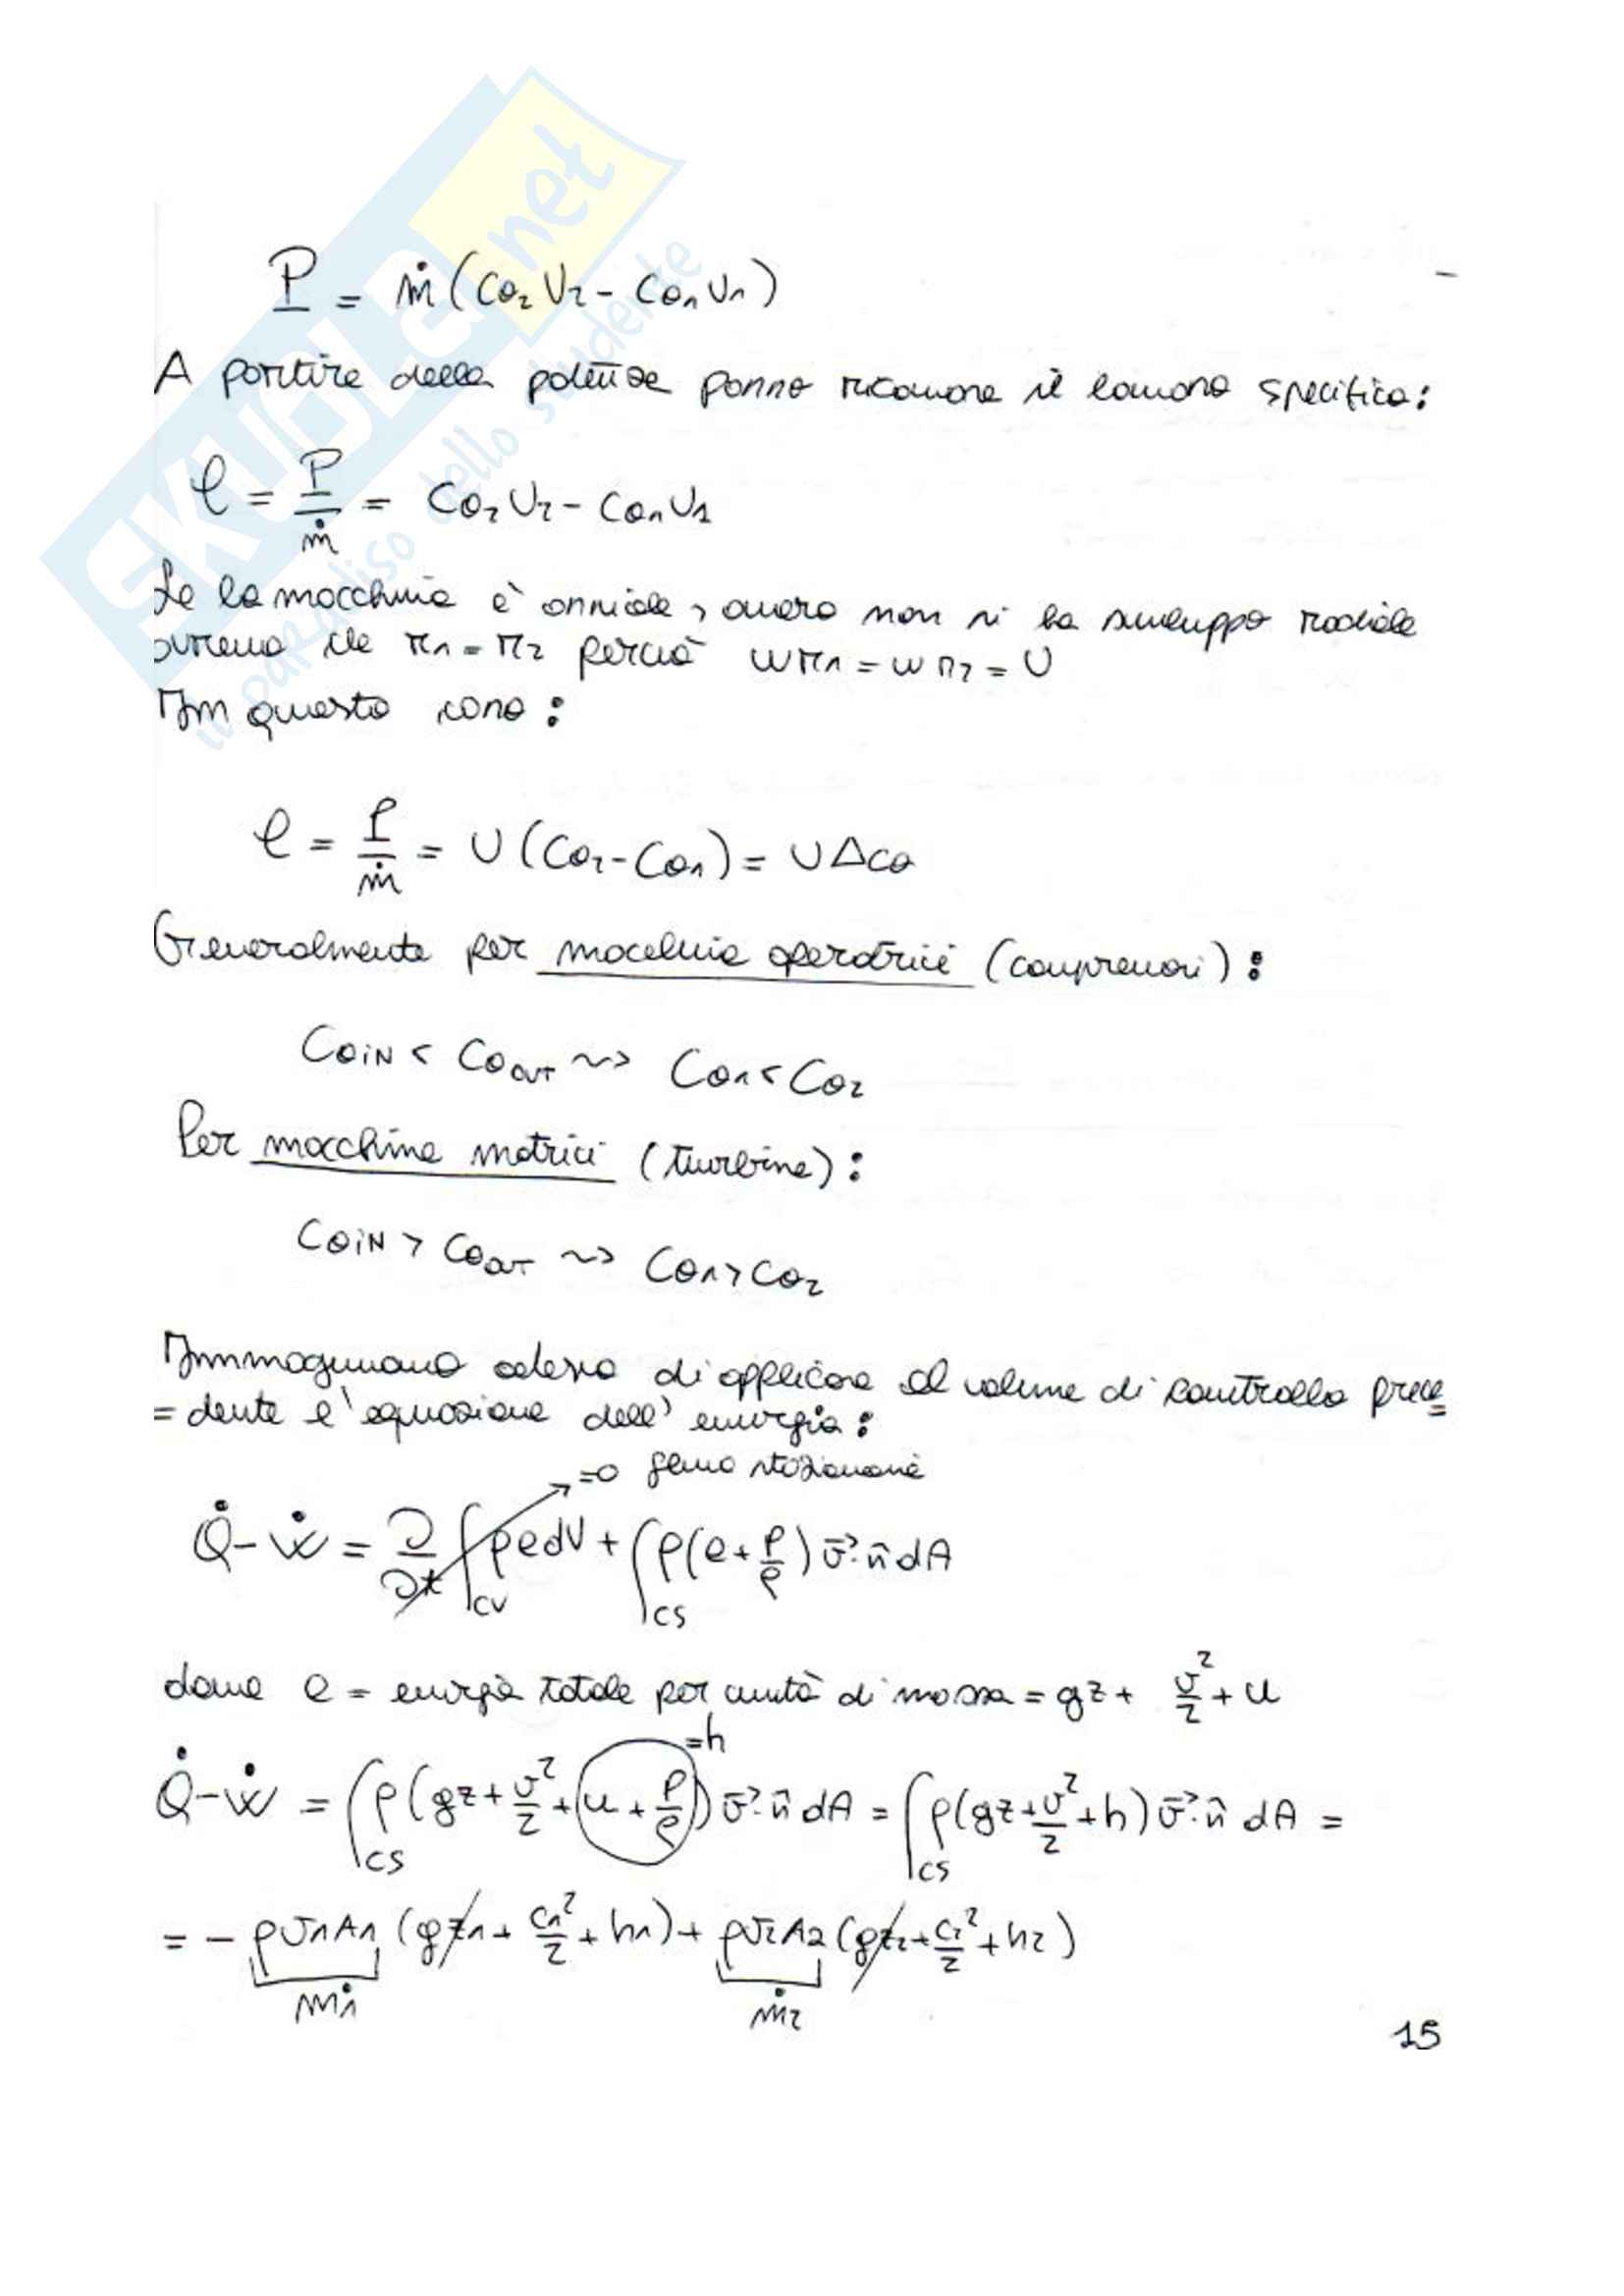 SKUOLA.net
il paradiso dello studente
P = ṁ (cθ₂ U₂ - cθ₁ U₁)
A partire dalla potenza posso ricavare il lavoro specifico:
l = P/ṁ = cθ₂ U₂ - cθ₁ U₁
Se la macchina è assiale, ovvero non si ha sviluppo radiale
avremo che r₁ = r₂ perciò ωr₁ = ωr₂ = U
In questo caso:
l = P/ṁ = U (cθ₂ - cθ₁) = U Δcθ
Generalmente per macchine operatrici (compressori):
cθIN < cθOUT ⇝ cθ₁ < cθ₂
Per macchine motrici (turbine):
cθIN > cθOUT ⇝ cθ₁ > cθ₂
Immaginiamo adesso di applicare al volume di controllo prece=
=dente l'equazione dell'energia:
=0 flusso stazionario
Q̇ - Ẇ = ∂/∂t ∫CV ρedV + ∫CS ρ(e + p/ρ) v⃗·n̂ dA
dove e = energia totale per unità di massa = gz + v²/2 + u
=h
Q̇ - Ẇ = ∫CS ρ(gz + v²/2 + u + p/ρ) v⃗·n̂ dA = ∫CS ρ(gz + v²/2 + h) v⃗·n̂ dA =
= - ρv₁A₁ (gz₁ + c₁²/2 + h₁) + ρv₂A₂ (gz₂ + c₂²/2 + h₂)
ṁ₁ ṁ₂
15